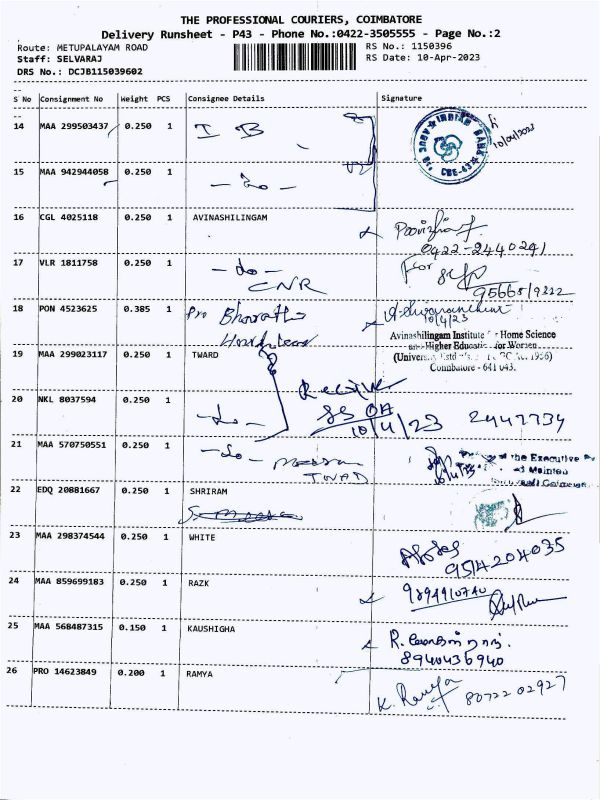 THE PROFESSIONAL COURIERS, COIMBATORE
Delivery Runsheet - P43 - Phone No.:0422-3505555 - Page No.:2
Route: METUPALAYAM ROAD
RS No.: 1150396
Staff: SELVARAJ
RS Date: 10-Apr-2023
DRS No.: DCJB115039602
S No Consignment No Weight PCS Consignee Details Signature
14 MAA 299503437 0.250 1 I B
INDIAN BANK
CBE-43
10/04/2023
15 MAA 942944058 0.250 1 - do -
16 CGL 4025118 0.250 1 AVINASHILINGAM
0422-2440241
17 VLR 1811758 0.250 1 - do - For
CNR
18 PON 4523625 0.385 1 Bharathi
10/4/23
Avinashilingam Institute for Home Science
Higher Education for Women
Coimbatore - 641 043.
19 MAA 299023117 0.250 1 TWARD
20 NKL 8037594 0.250 1 - do -
10/4/23 2442734
21 MAA 570750551 0.250 1 - do -
TWAD
the Executive
22 EDQ 20881667 0.250 1 SHRIRAM
23 MAA 298374544 0.250 1 WHITE
9514204035
24 MAA 859699183 0.250 1 RAZK
9894910740
25 MAA 568487315 0.150 1 KAUSHIGHA
8940436940
26 PRO 14623849 0.200 1 RAMYA
K. Ramya 8072202927